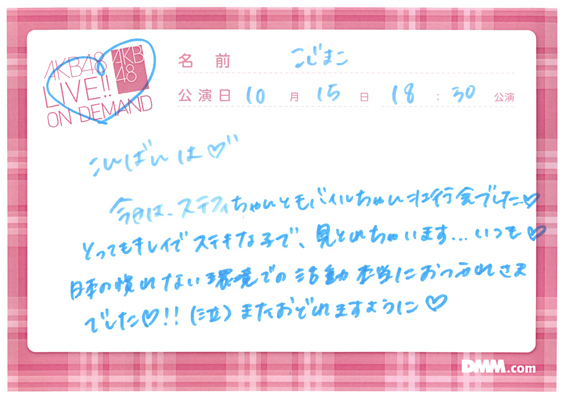 AKB48
LIVE!!
ON DEMAND
AKB
48
名前 こじまこ
公演日 10月 15日 18:30 公演
こんばんは♡
今日は、ステフィちゃんとモバイルちゃんに行会でした♡
とってもキレイでステキな子で、見とれちゃいます...いつも♡
日本の慣れない環境での活動本当におつかれさま
でした♡!!(泣)またおどれますように♡
DMM.com